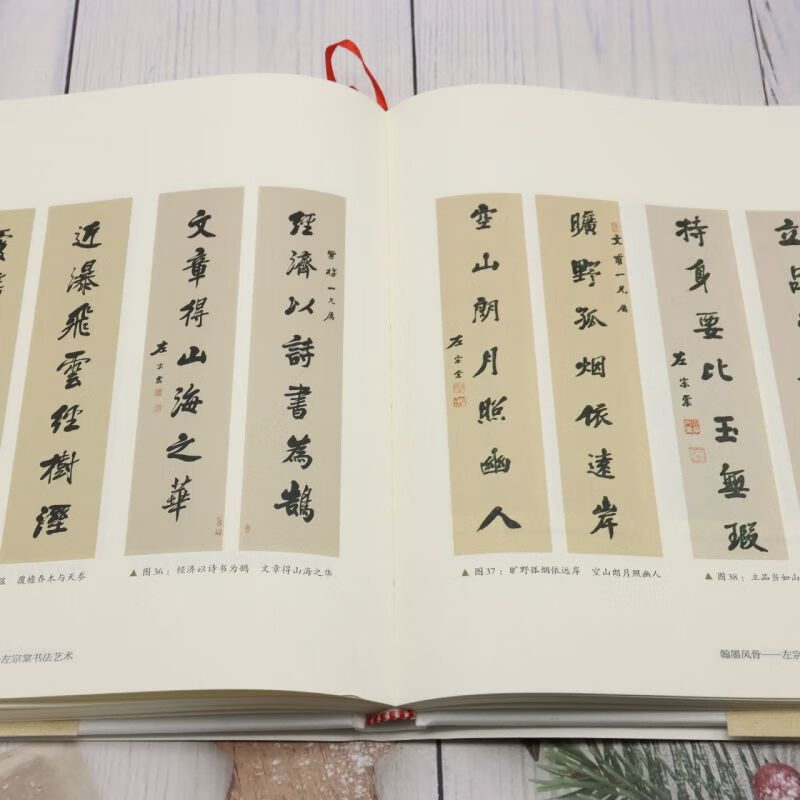 經濟以詩書為鵠
文章得山海之華
左宗棠
近瀑飛雲經樹溼
覆檐乔木与天参
▲ 图36：经济以诗书为鹄 文章得山海之华
左宗棠书法艺术
立品
持身要比玉無瑕
左宗棠
曠野孤烟依遠岸
文甫一兄屬
空山朗月照幽人
左宗棠
▲ 图37：旷野孤烟依远岸 空山朗月照幽人
▲ 图38：立品当如山
翰墨风骨——左宗